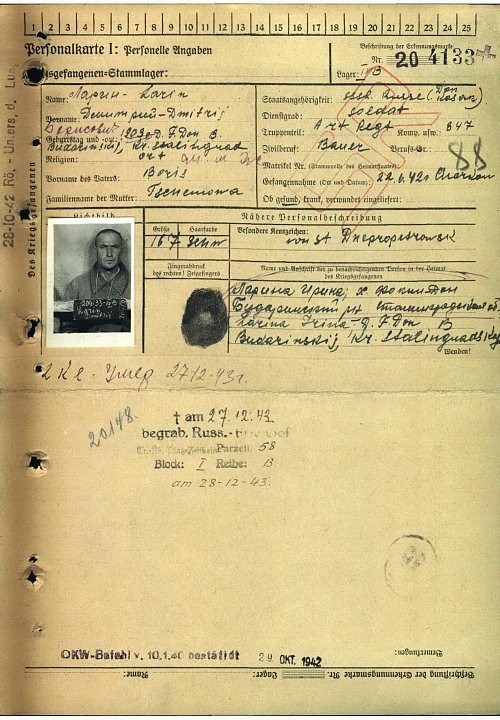 1 2 3 4 5 6 7 8 9 10 11 12 13 14 15 16 17 18 19 20 21 22 23 24 25
Personalkarte I: Personelle Angaben
Kriegsgefangenen-Stammlager:
Beschriftung der Erkennungsmarke
Nr. 204133
Lager:
Des Kriegsgefangenen
28-10-42 Rö.-Unters. d. Lun
Name: Ларин - Larin
Vorname: Димитрий-Dmitrij
Борисович
Geburtstag und -ort: 1903 D. F. Don B.
Budarinskij, Kr. Stalingrad
Religion: ort
Vorname des Vaters: Boris
Familienname der Mutter:
Staatsangehörigkeit: Russe (Don Kosak)
Dienstgrad: Soldat
Truppenteil: Art Regt Komp. usw.: 847
Zivilberuf: Bauer Berufs-Gr.:
Matrikel Nr. (Stammrolle des Heimatstaates):
Gefangennahme (Ort und Datum): 22.6.42 Charkow
Ob gesund, krank, verwundet eingeliefert:
88
Lichtbild
Nähere Personalbeschreibung
Größe Haarfarbe
167 Schw
Besondere Kennzeichen:
von St Dnepropetrowsk
Fingerabdruck
des rechten ! Zeigefingers
Name und Anschrift der zu benachrichtigenden Person in der Heimat
des Kriegsgefangenen
204133 IVB
Larin
Dmitrij
Ларина Ирина, х.
Бударинский рн сталинградской об.
Larina Irina - D. F. Don B
Budarinskij, Kr. Stalingradskij
Wenden!
Умер 27/12.43г.
20148.
† am 27.12.43
begrab. Russ.-Friedhof
Parzell. 58
Block: I Reihe: B
am 28-12-43.
OKW-Befehl v. 10.1.40 bestätigt 29. OKT. 1942
Bemerkungen:
Name: Lager: Beschriftung der Erkennungsmarke Nr.